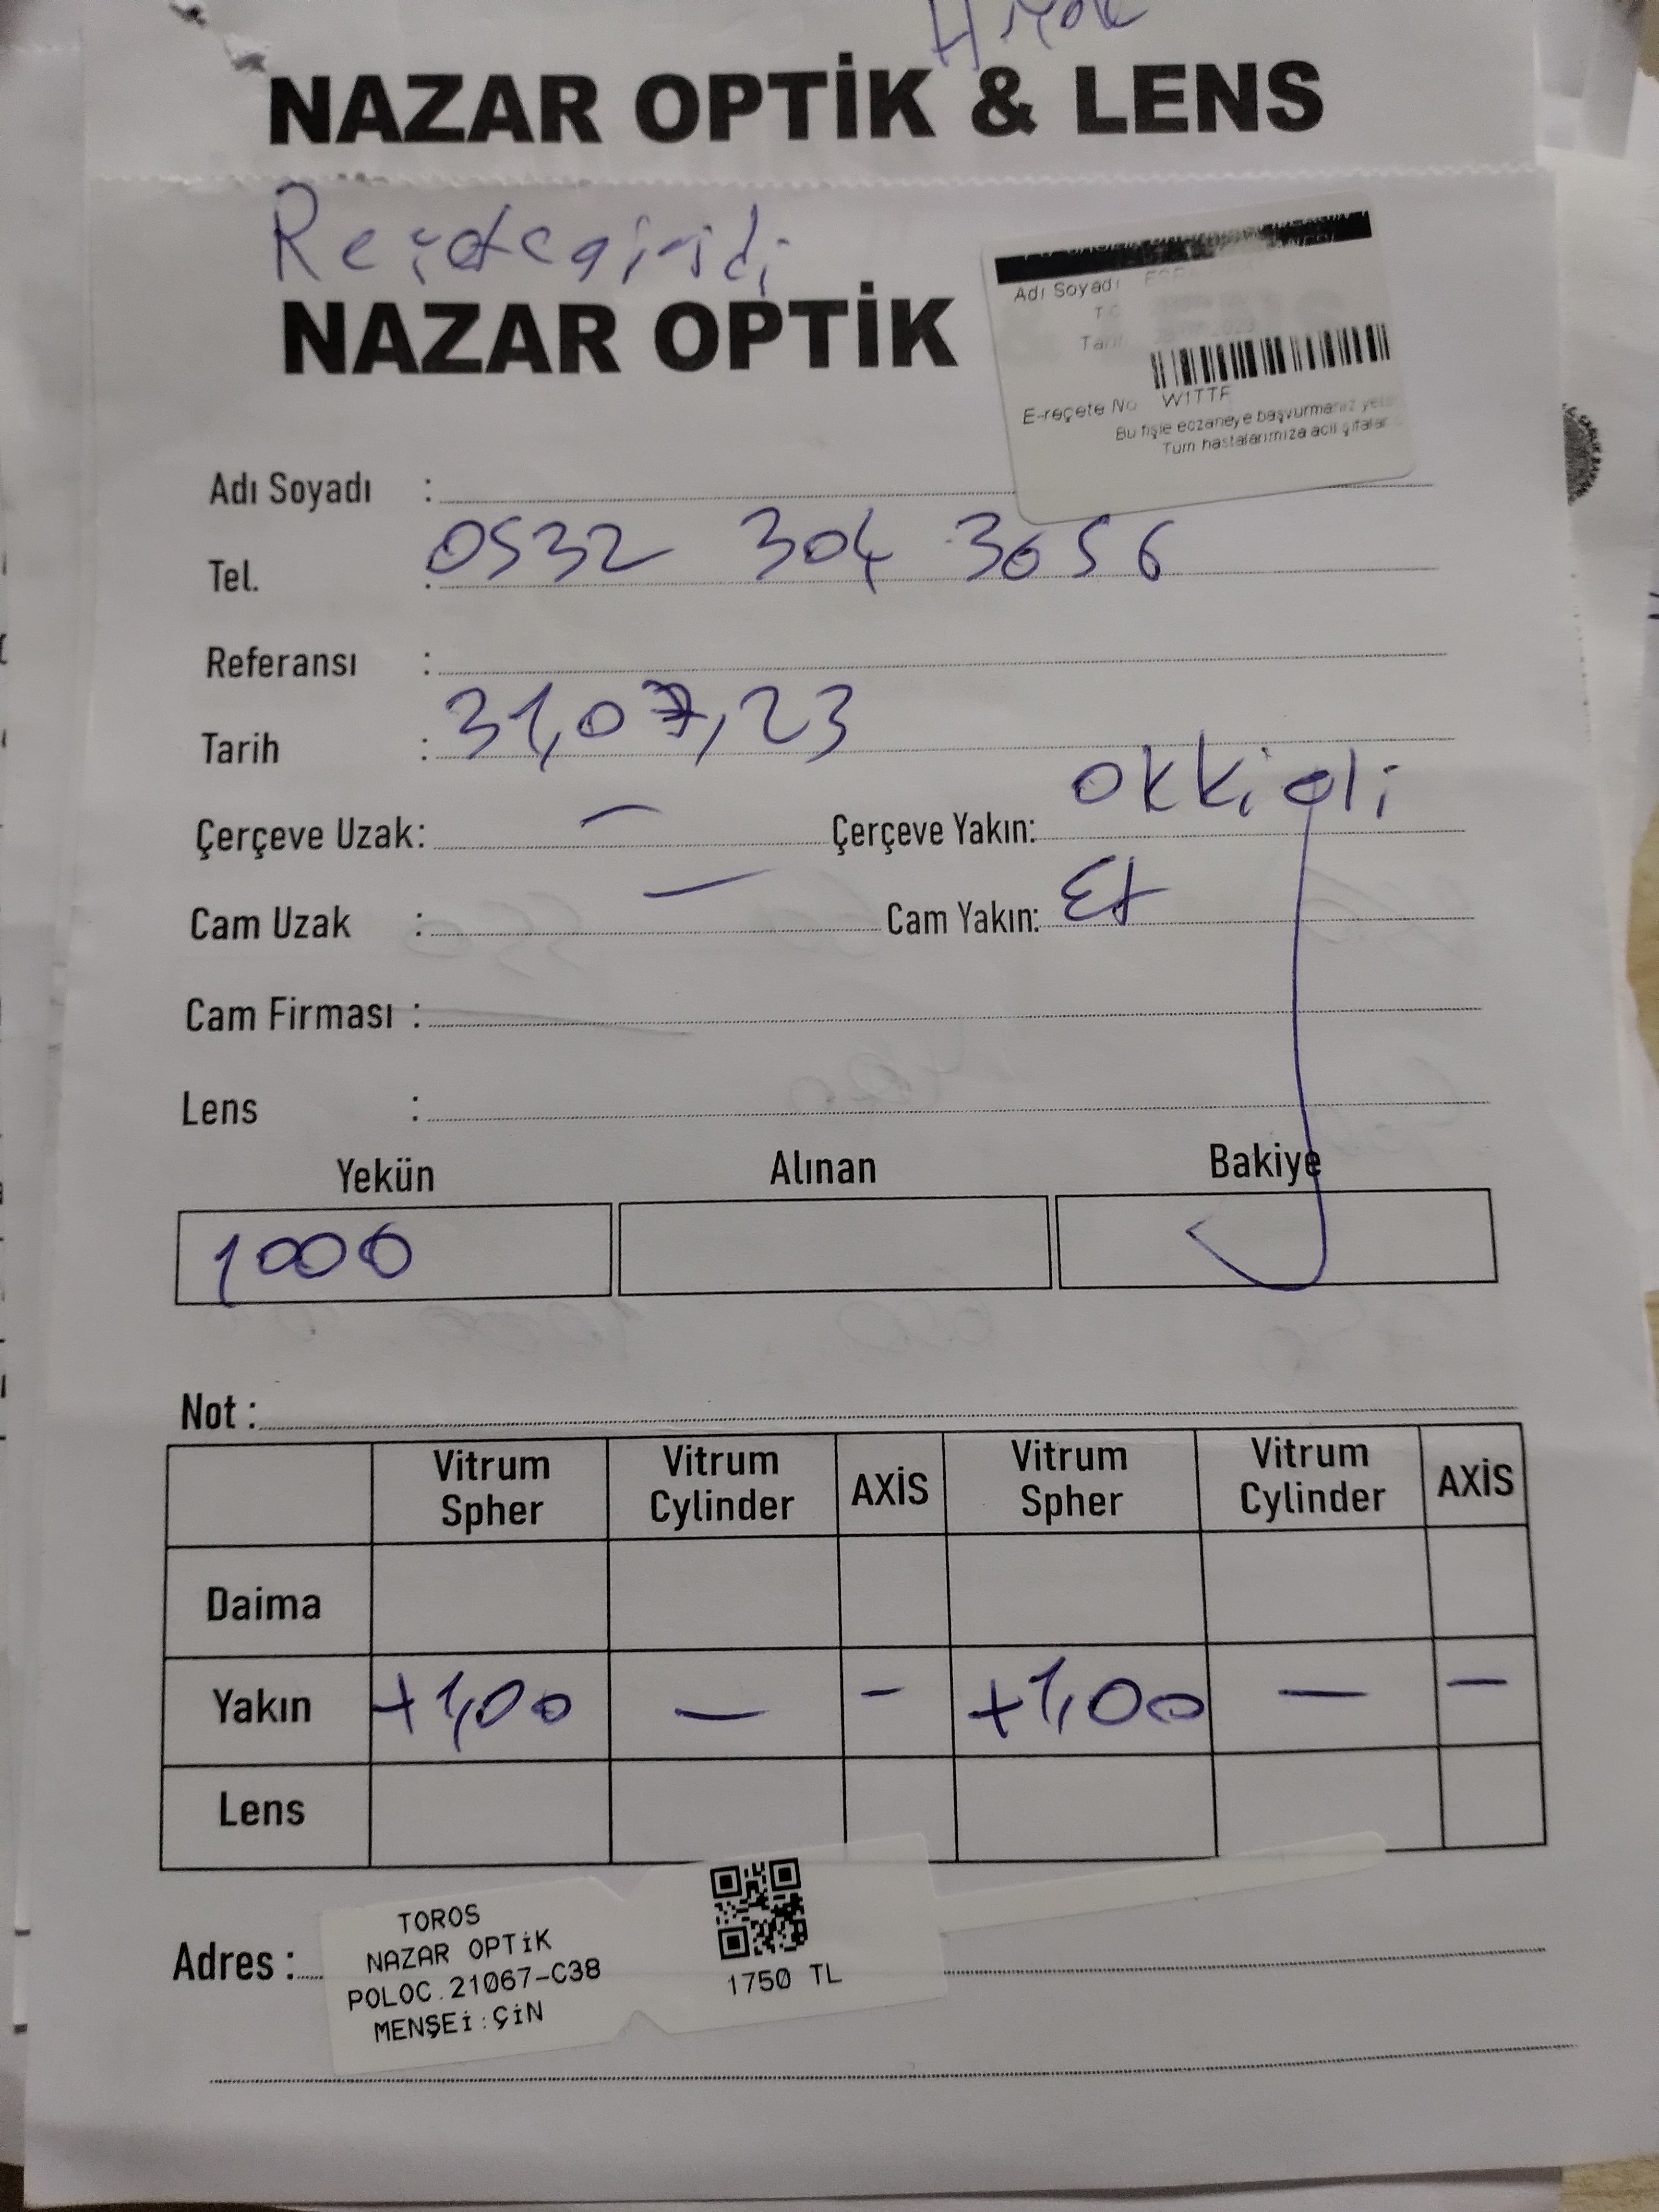 NAZAR OPTİK & LENS
NAZAR OPTİK
Adı Soyadı
E-reçete No W1TTF
Bu fişle eczaneye başvurmanız
Tüm hastalarımıza acil şifalar
Adı Soyadı :
Tel. : 0532 304 3656
Referansı :
Tarih : 31,07,23
Çerçeve Uzak: — Çerçeve Yakın: okkiali
Cam Uzak : — Cam Yakın:
Cam Firması :
Lens :
Yekün Alınan Bakiye
1000
Not :
Vitrum Spher Vitrum Cylinder AXİS Vitrum Spher Vitrum Cylinder AXİS
Daima
Yakın +1,00 — - +1,00 — —
Lens
Adres :
TOROS
NAZAR OPTİK
POLOC.21067-C38
MENŞEİ:ÇİN
1750 TL